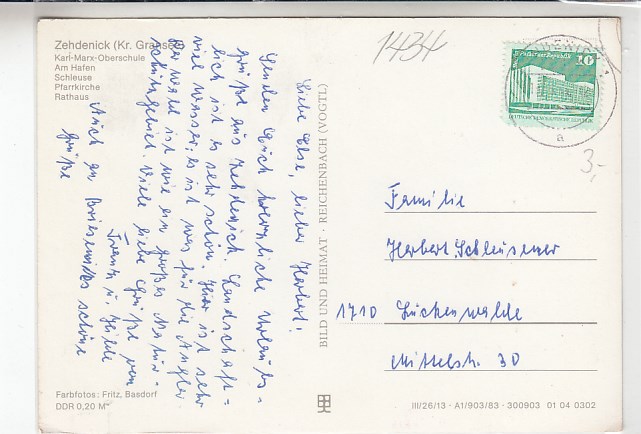 Zehdenick (Kr. Gransee)
Karl-Marx-Oberschule
Am Hafen
Schleuse
Pfarrkirche
Rathaus
1434
10
DEUTSCHE DEMOKRATISCHE REPUBLIK
a
3,-
Liebe Else, lieber Herbert!
Senden Euch herzliche Urlaubs-
grüße aus Zehdenick. Landschaft-
lich ist es sehr schön. Hier ist sehr
viel Wasser, es ist was für die Angler.
Der Wald ist wie ein großes Natur-
schutzgebiet. Viele liebe Grüße von
Frank u. Hilde
Auch an schöne
Grüße
BILD UND HEIMAT · REICHENBACH (VOGTL)
Familie
Herbert Schleusener
1710 Luckenwalde
Mittelstr. 30
Farbfotos: Fritz, Basdorf
DDR 0,20 M
III/26/13 · A1/903/83 · 300903 01 04 0302